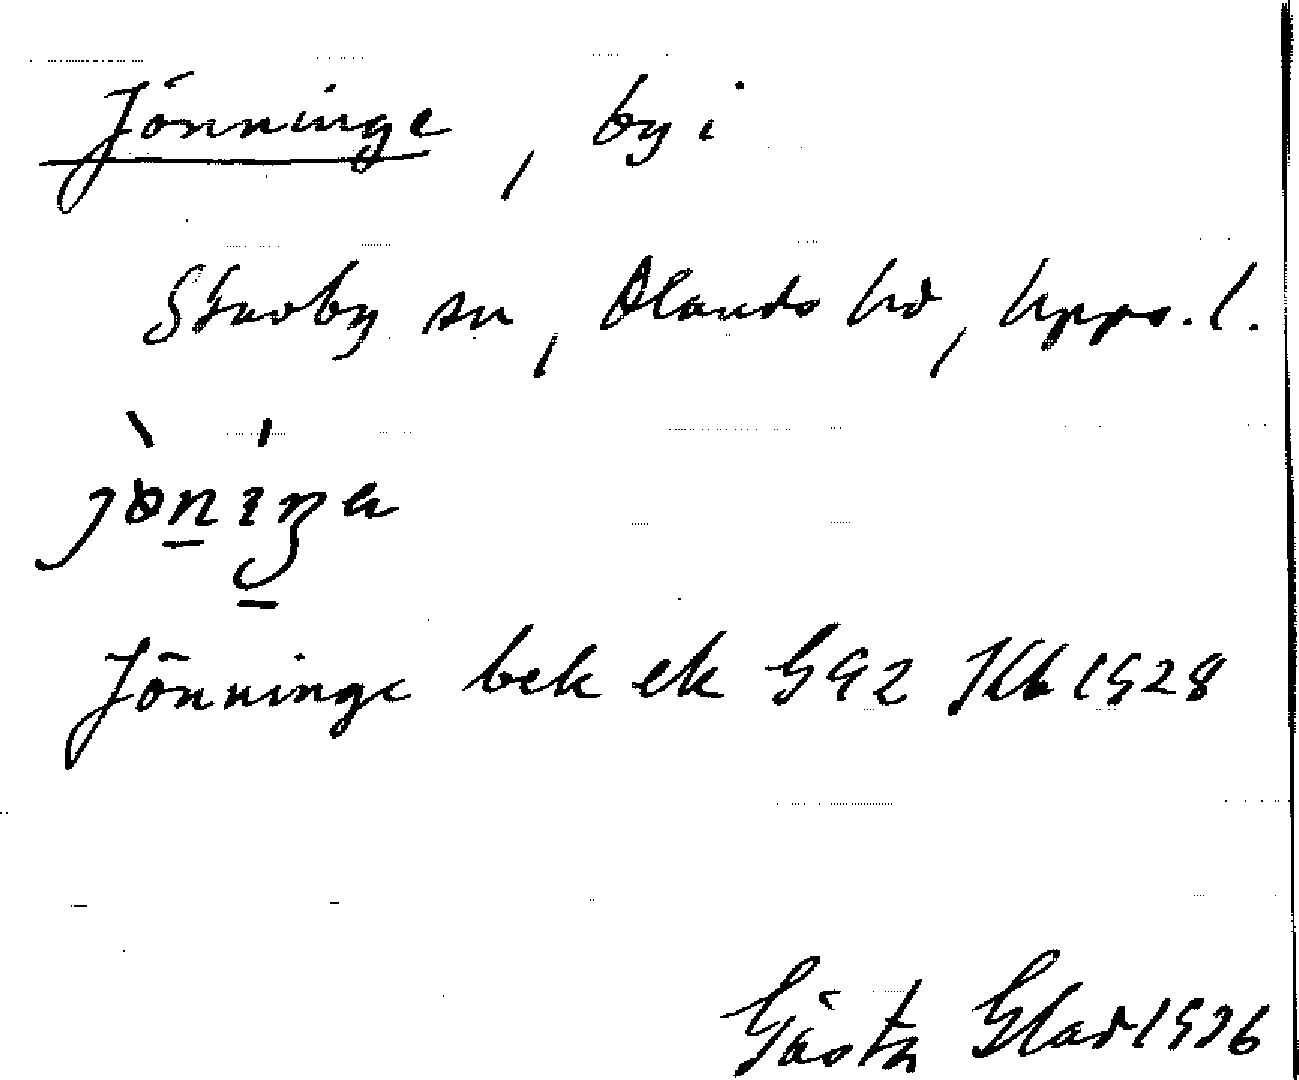 Jönninge, by i
Stavby sn, Olands hd, Upps. l.
Jönninge bek ek G92 Kb 1928
Gösta Glad 1936